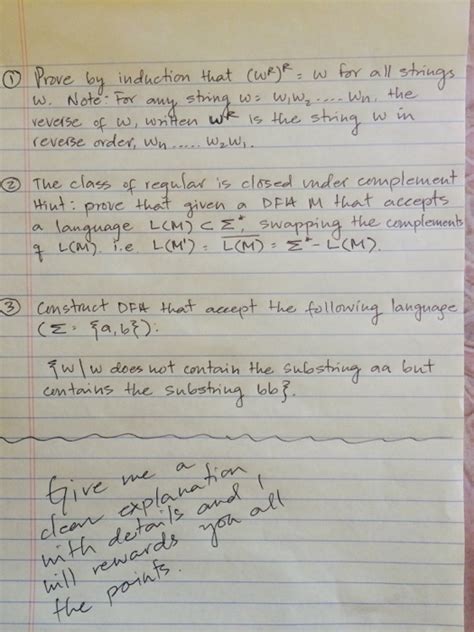 ① Prove by induction that (wᴿ)ᴿ = w for all strings
w. Note: For any string w = w₁w₂ ..... wₙ, the
reverse of w, written wᴿ is the string w in
reverse order, wₙ ..... w₂w₁.
② The class of regular is closed under complement
Hint: prove that given a DFA M that accepts
a language L(M) ⊂ Σ*, swapping the complements
of L(M). i.e L(M') = L̅(̅M̅)̅ = Σ* - L(M).
③ Construct DFA that accept the following language
(Σ = {a,b}):
{w | w does not contain the substring aa but
contains the substring bb}.
Give me a
clean explanation
with details and I
will rewards you all
the points.